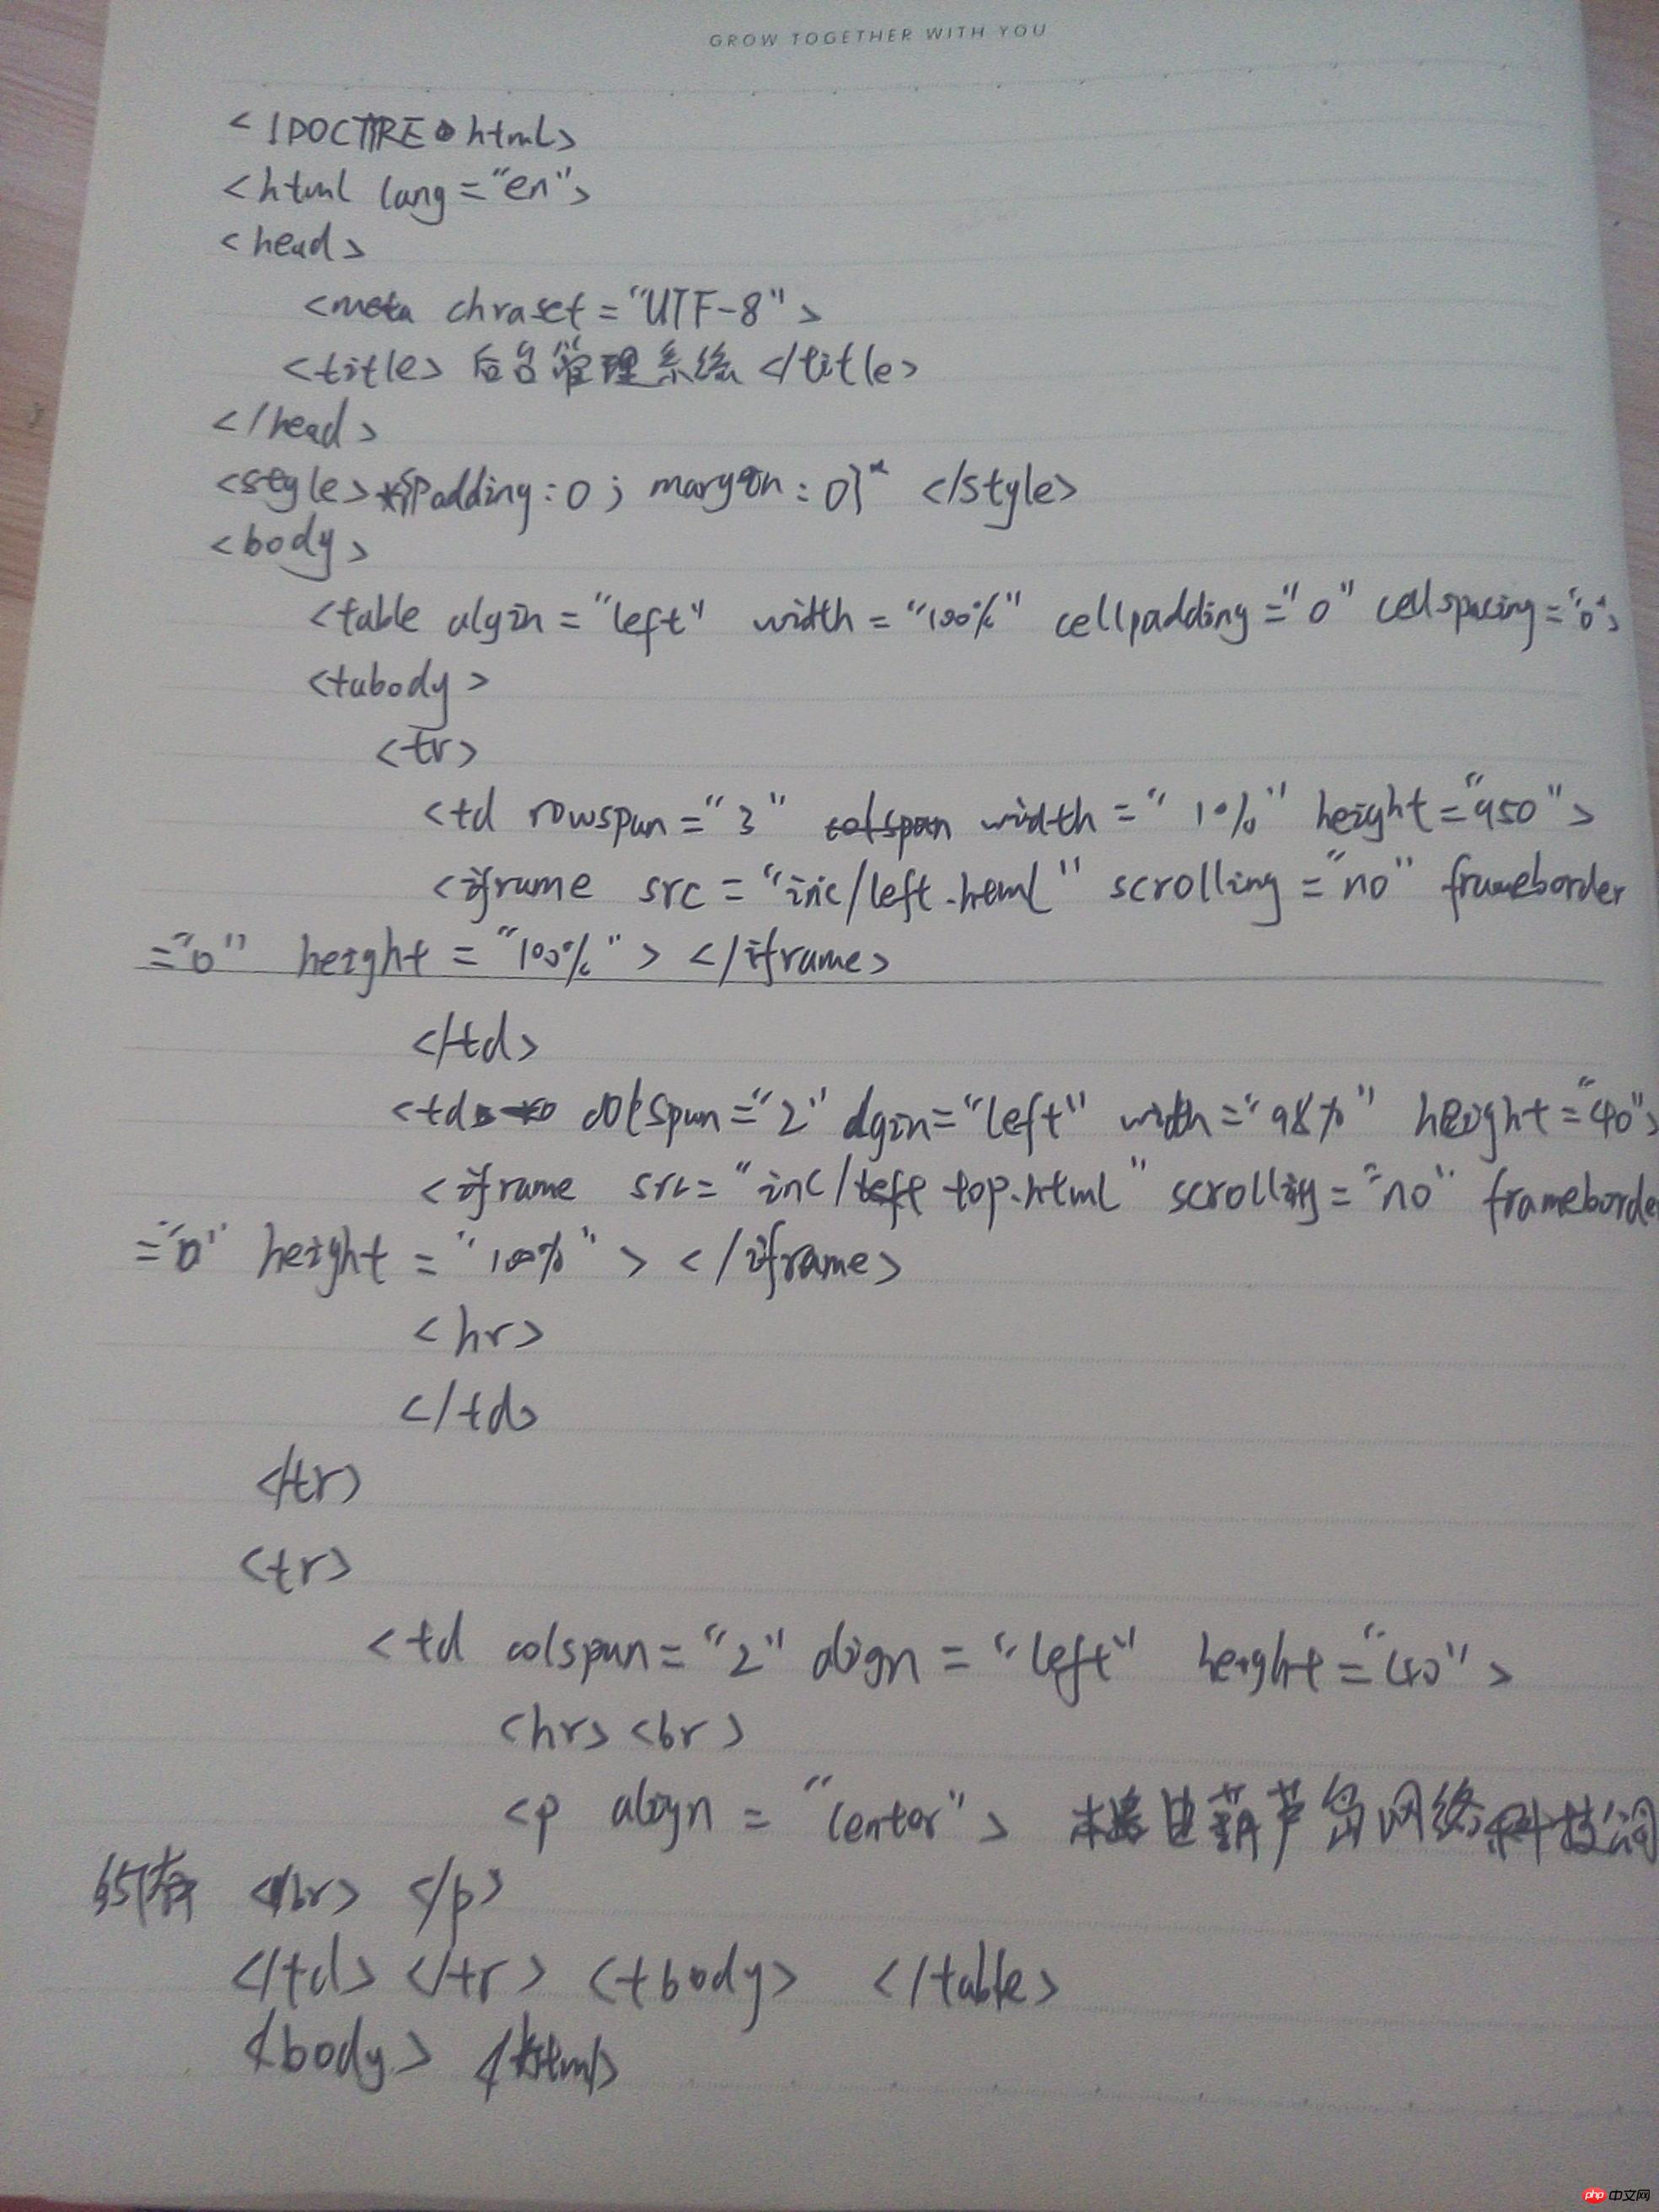 GROW TOGETHER WITH YOU
<!DOCTYRE html>
<html lang="en">
<head>
<meta chraset="UTF-8">
<title>后台管理系统</title>
</head>
<style>*{padding:0; margin:0}</style>
<body>
<table algin="left" width="100%" cellpadding="0" cellspacing="0">
<tubody>
<tr>
<td rowspan="3" width="10%" height="950">
<iframe src="inc/left.html" scrolling="no" frameborder
="0" height="100%"></iframe>
</td>
<td colspan="2" algin="left" width="98%" height="40">
<iframe src="inc/top.html" scrolling="no" frameborde
="0" height="100%"></iframe>
<hr>
</td>
</tr>
<tr>
<td colspan="2" align="left" height="40">
<hr><br>
<p align="center"> 葫芦岛网络科技
所有 </br> </p>
</td></tr><tbody> </table>
</body> </html>
php 中文网